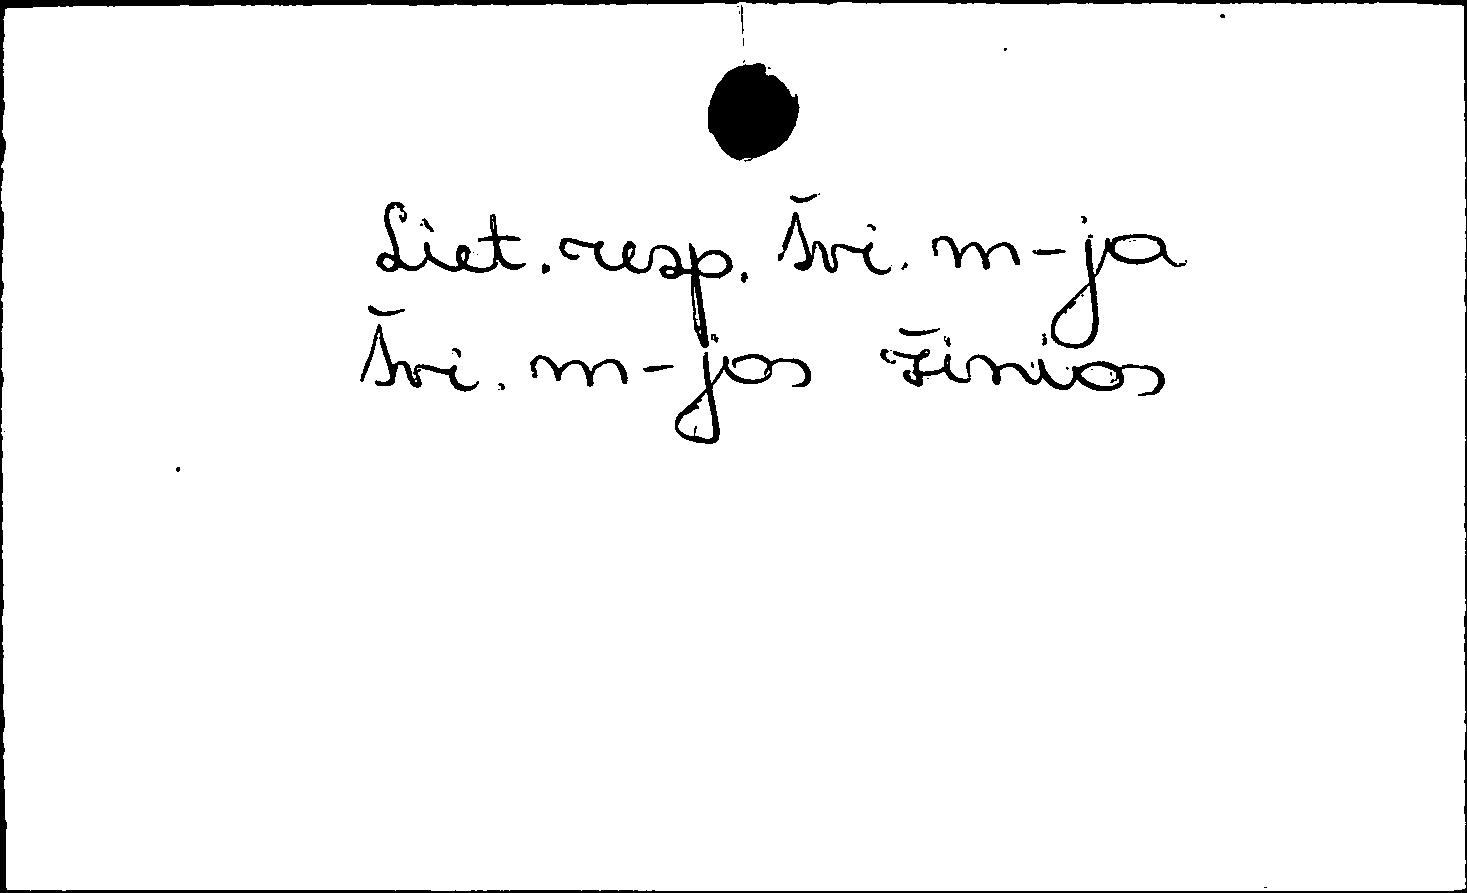 Liet. resp. Švi. m-ja
Švi. m-jos žinios